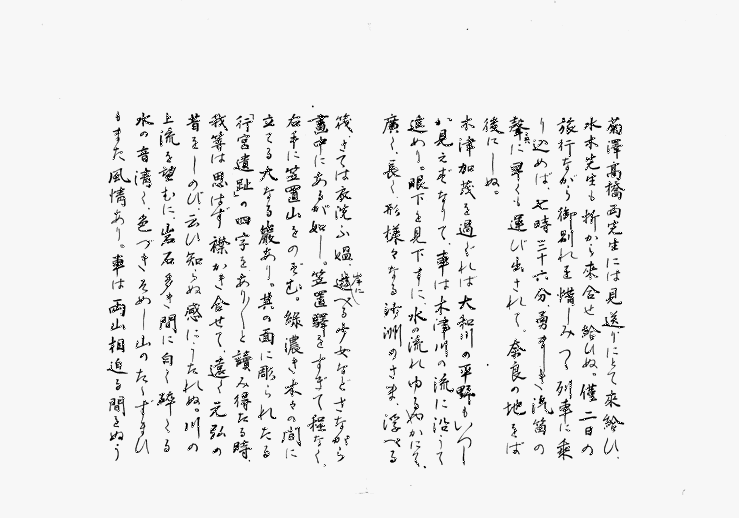 菊澤高橋両先生には見送りにとて來給ひ、
水木先生も折から來合せ給ひぬ。僅二日の
旅行ながら御別れを惜しみつゝ列車に乘
り込めば、七時三十六分勇ましき汽笛の
聲に早くも運び出されて、奈良の地をば
後にしぬ。
木津加茂を過ぐれば大和川の平野もいつし
か見えずなりて、車は木津川の流に沿うて
進めり。眼下を見下すに、水の流れゆるやかにて、
廣く、長く、形様々なる洲のさま、浮べる
筏、さては衣洗ふ媼、岸に遊べる少女などさながら
畫中にあるが如し。笠置驛をすぎて程なく、
右手に笠置山をのぞむ。綠濃き木々の間に
立てる大なる巖あり。其の面に彫られたる
「行宮遺趾」の四字をあり〳〵と讀み得たる時、
我等は思はず襟かき合せて、遠く元弘の
昔をしのび、云ひ知らぬ感にうたれぬ。川の
上流を望むに、岩石多き間に白く碎くる
水の音清く、色づきそめし山のたゝずまひ
もまた風情あり。車は両山相迫る間をぬう